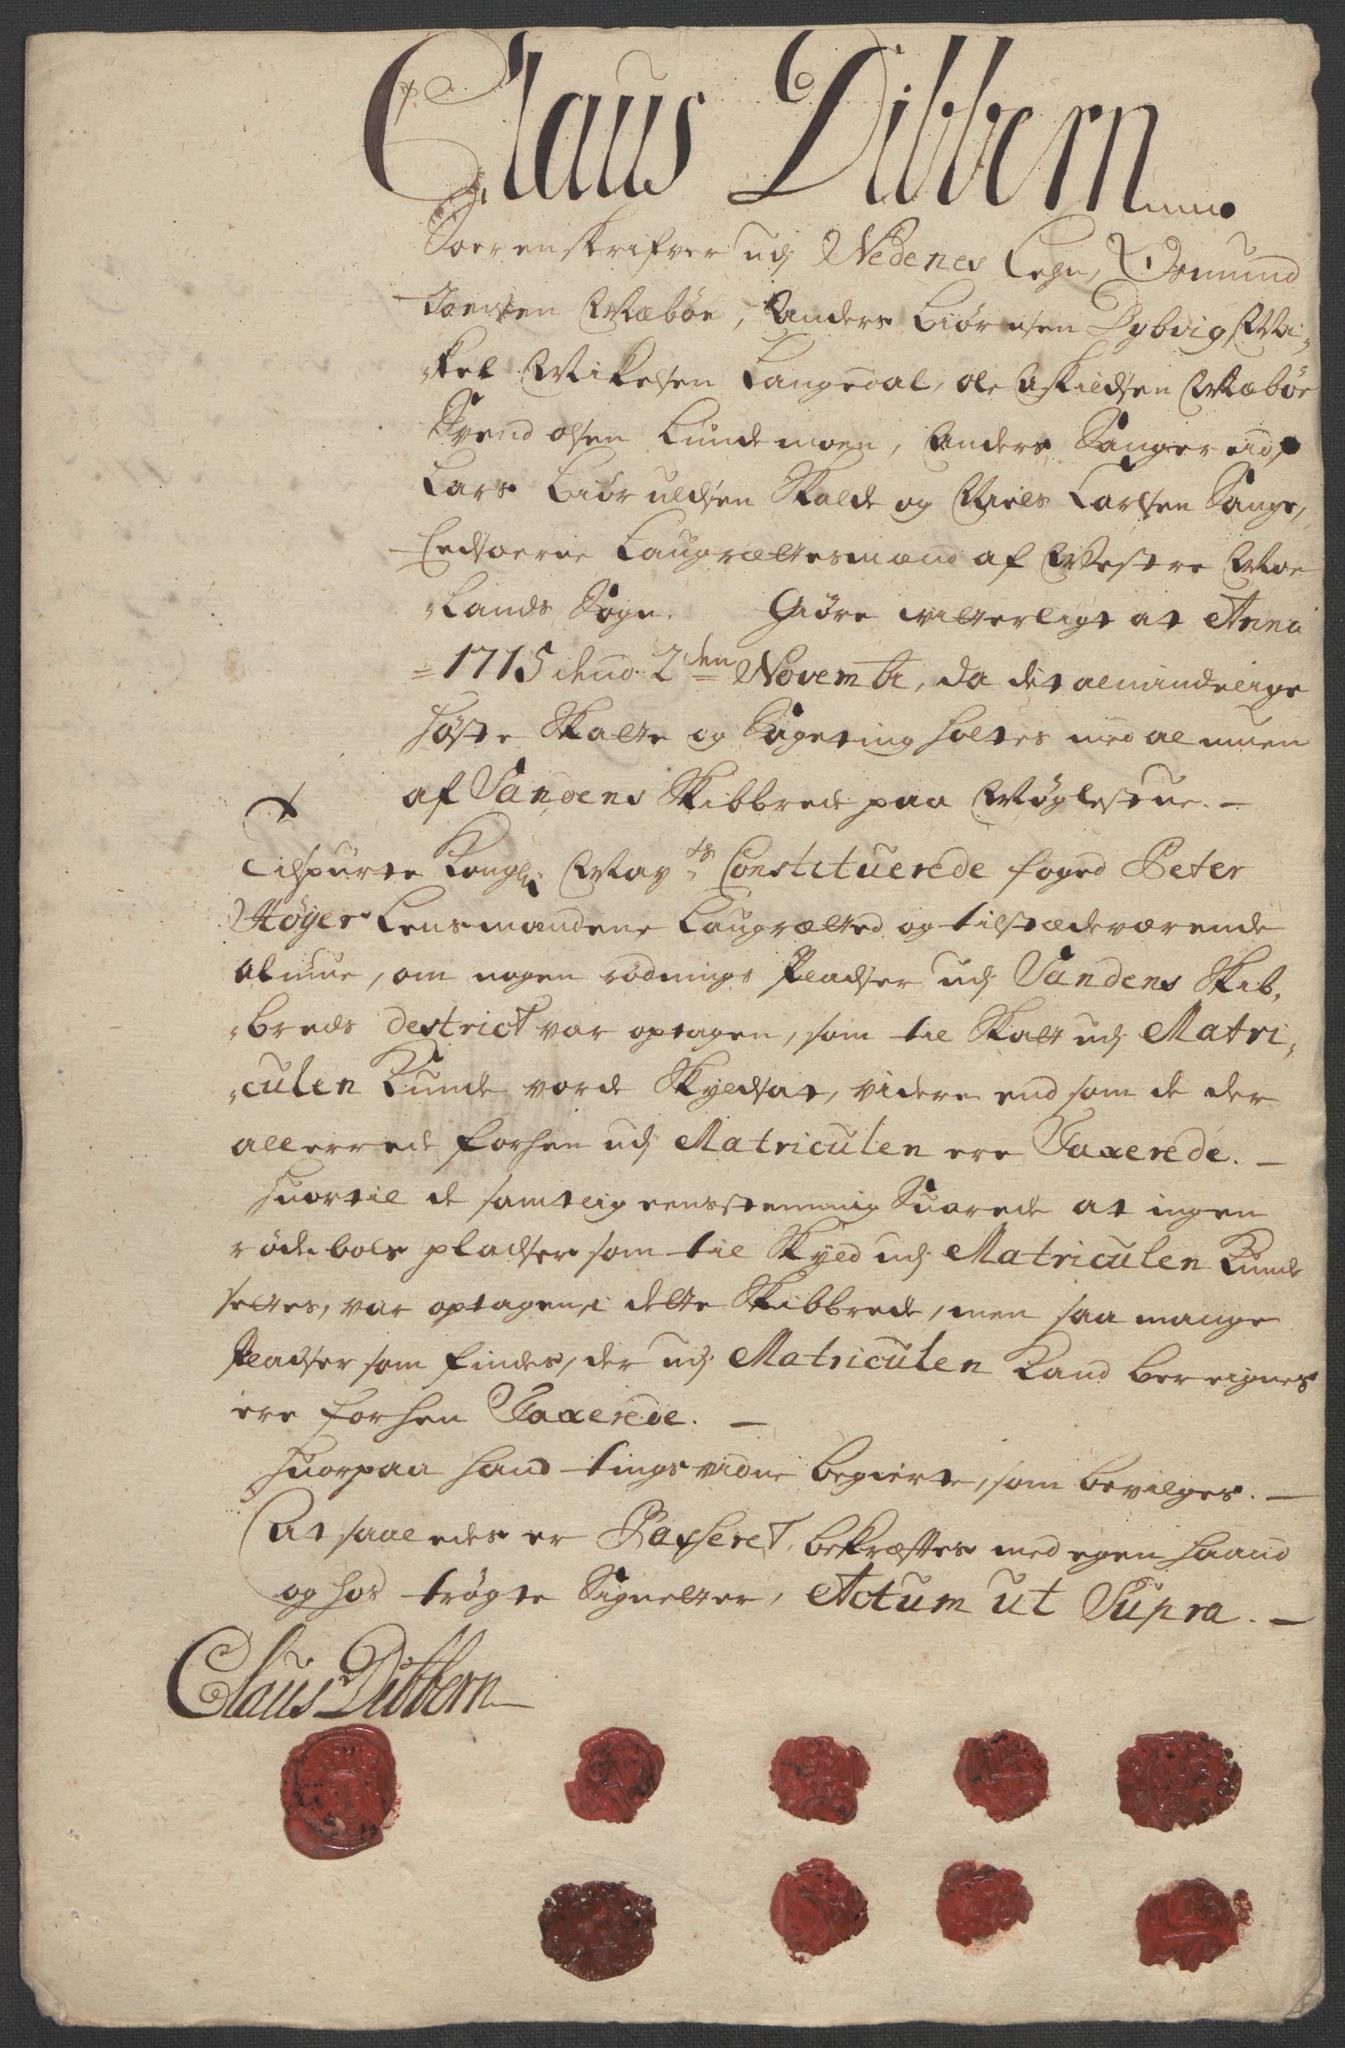 Claus Dibbern
Soerenskrifver udj Nedenes Lehn, Osmund
Joensen Mæbøe, Anders Biørnsen Dybvig, Mi-
-kel Mikelsen Langedal, Ole Askildsen Mæbøe
Svend Olsen Lundemoen, Anders Sangereid,
Lars Biøruldsen Skalde og Niels Larsen Sange,
Eedsorne Laugrættesmænd af Vestre Moe
-lands Sogn. Giøre vitterligt at Anno
1715 dend 2den Novembr, da det almindelige
Høste Skatte og Sageting holtes med almuen
af Sandens Skibbrede paa Møglestue. —
Tilspurte Kongl: May:ts Constituerede foged Peter
Høyer Lensmandene Laugrætted og tilstædeværende
Almue, om nogen rødnings Pladser udj Sandens Skib-
-breds destrict var optagen, som til Skatt udj Matri-
-culen Kunde vorde Skyldsat, videre end som de der
allerrede forhen udj Matriculen ere Taxerede. —
Huortil de samtlig eensstemmig Suarede at ingen
rødebols pladser som til Skyld udj Matriculen Kunde
settes, var optagen i dette Skibbrede, men saa mange
Pladser som findes, der udj Matriculen Kand bereignes
ere forhen Taxerede. —
Huorpaa hand tingsvidne begierte, som bevilges. —
At saaledes er Passeret, bekræftes med egen haand
og hos trøgte Signetter, Actum ut Supra. —
Claus Dibbern